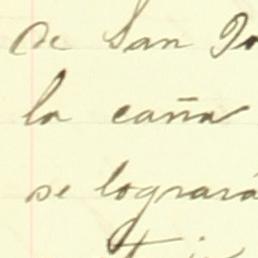 de San
la caña
se logrará